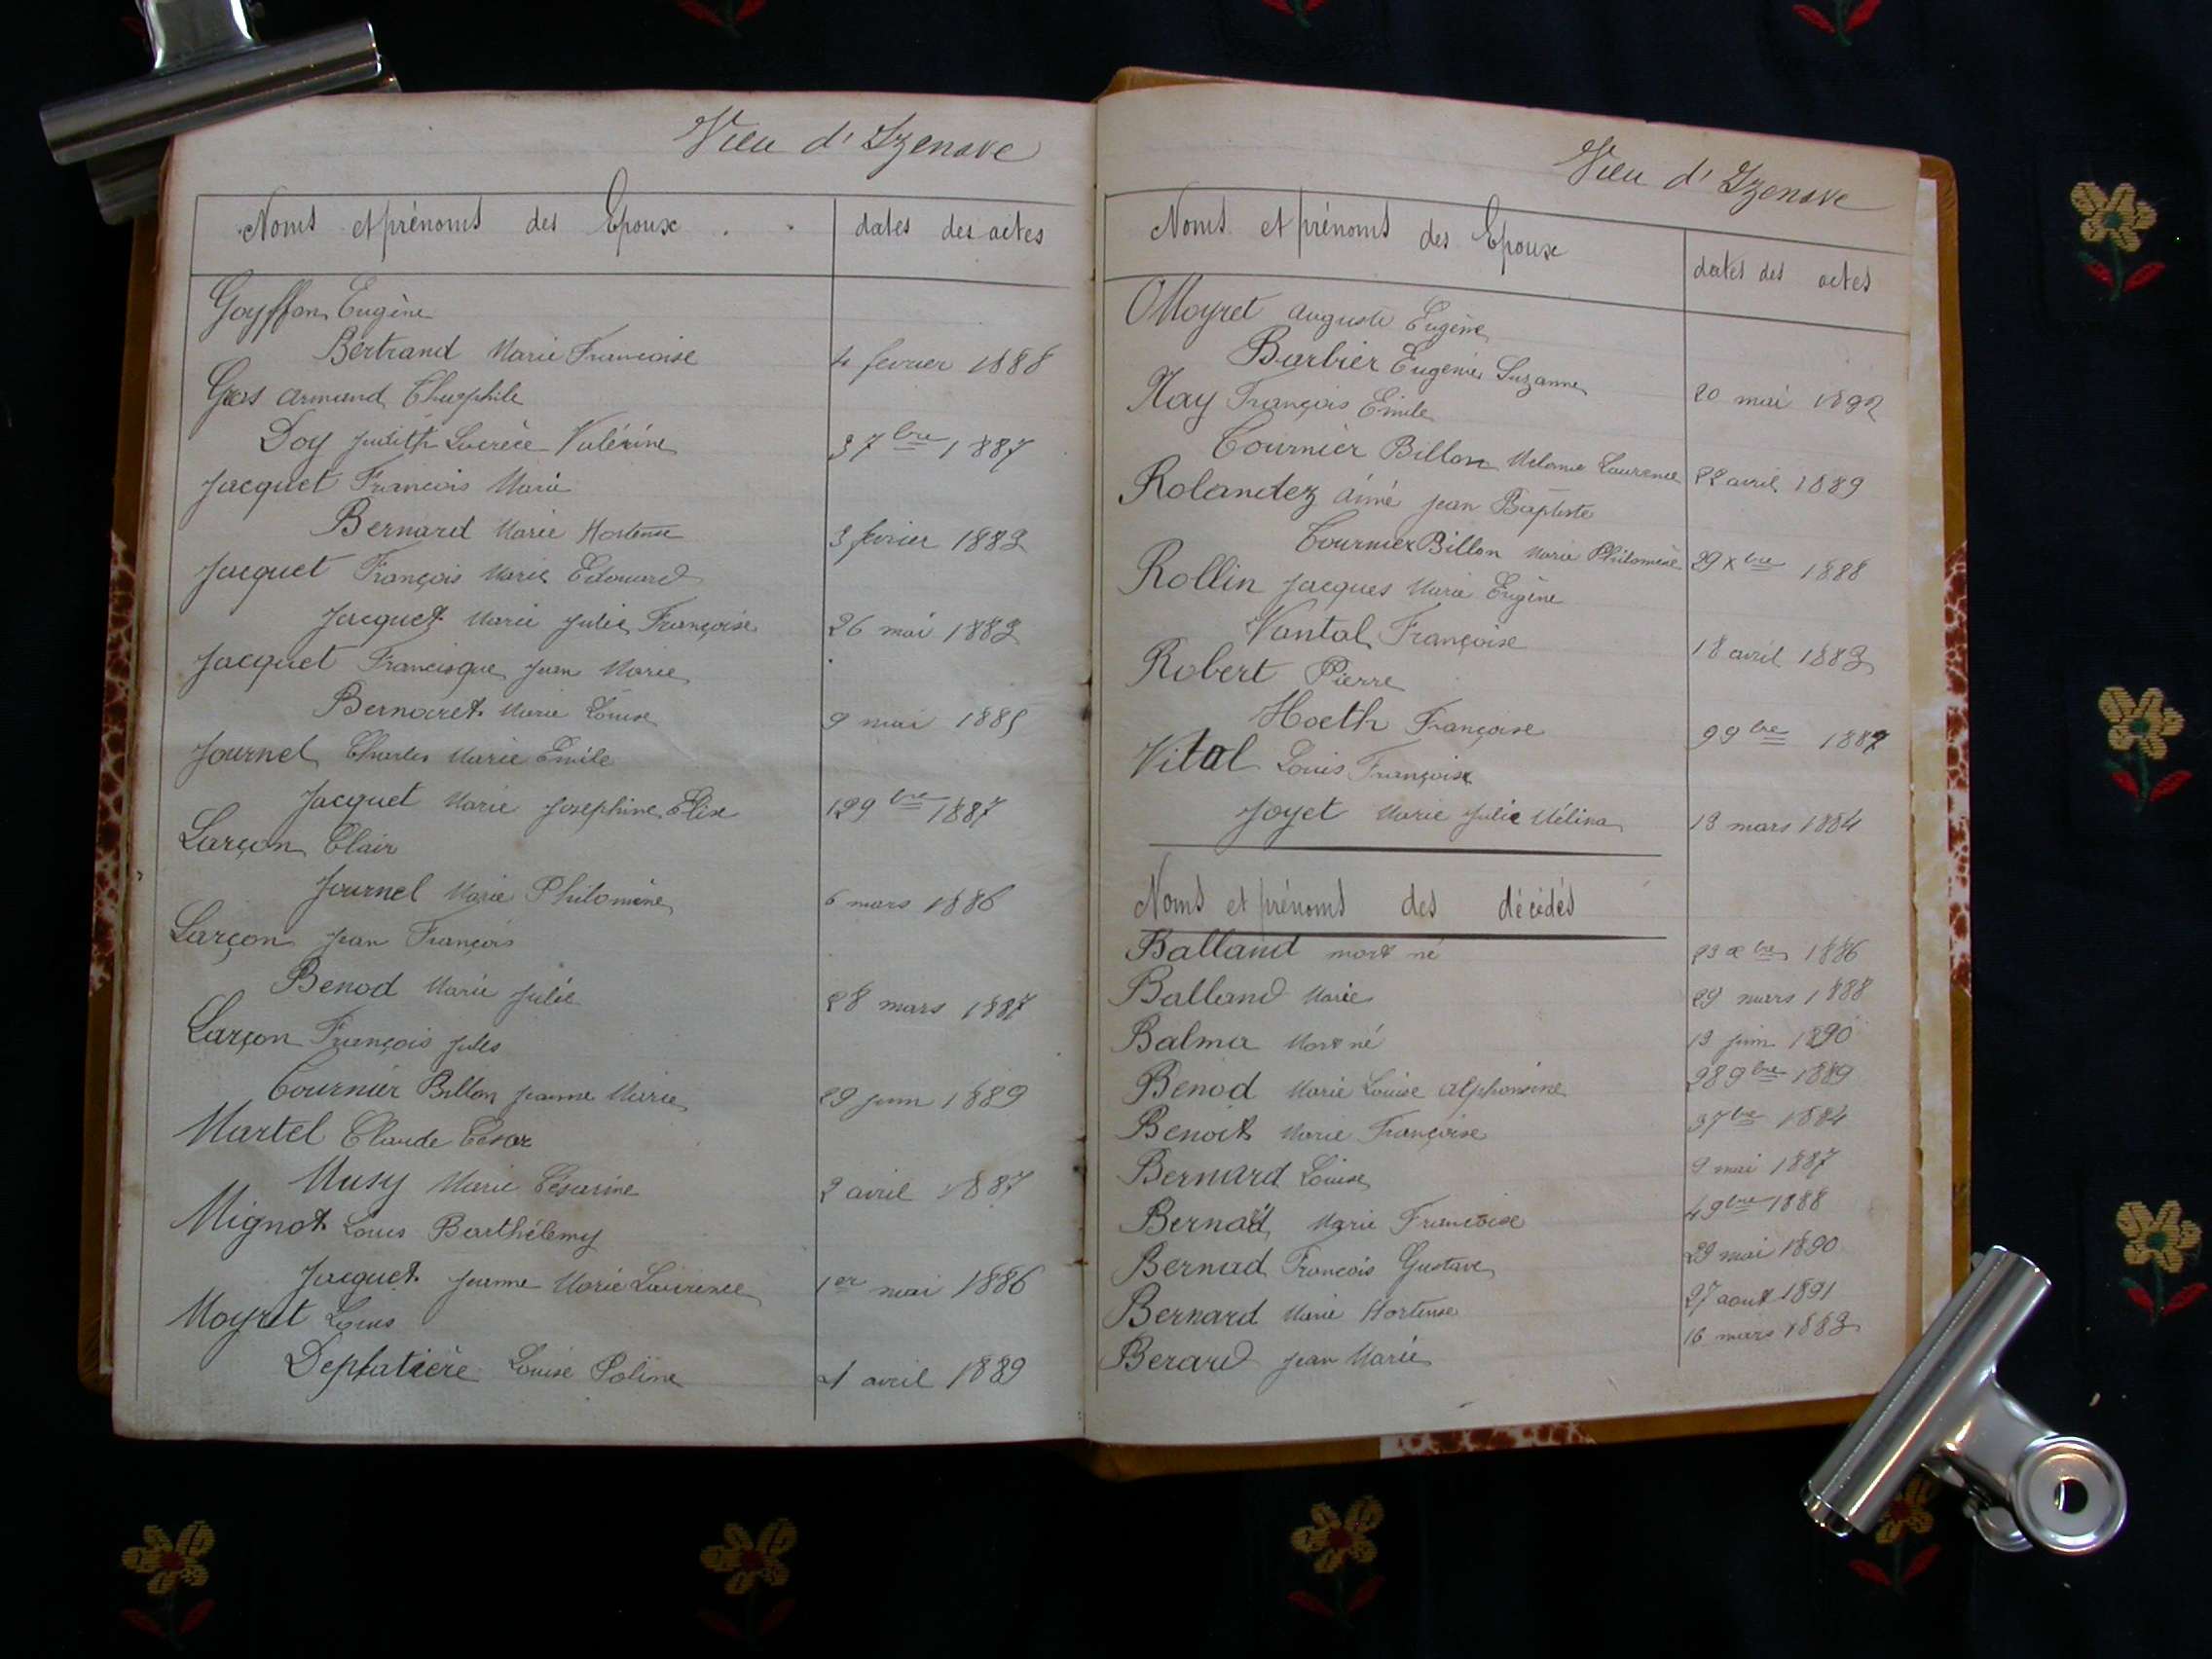 Vieu d'Izenave
Noms et prénoms des Epoux dates des actes
Goyffon Eugène
Bertrand Marie Françoise 4 fevrier 1888
Gros Armand Théophile
Doy Judith Lucrèce Valérine 3 7bre 1887
Jacquet François Marie
Bernard Marie Hortense 3 février 1883
Jacquet François Marie Edouard
Jacquet Marie Julie Françoise 26 mai 1883
Jacquet Francisque Jean Marie
Bernaret Marie Louise 9 mai 1885
Journel Charles Marie Emile
Jacquet Marie Josephine Elise 12 9bre 1887
Larçon Clair
Journel Marie Philomène 6 mars 1886
Larçon Jean François
Benod Marie Julie 28 mars 1887
Larçon François Jules
Tournier Billon Jeanne Marie 29 juin 1889
Martel Claude César
Musy Marie Césarine 2 avril 1887
Mignot Louis Barthélemy
Jacquet Jeanne Marie Laurence 1er mai 1886
Moyret Louis
Deplatière Louise Poline 1 avril 1889
Vieu d'Izenave
Noms et prénoms des Epoux dates des actes
Moyret Auguste Eugène
Barbier Eugénie Suzanne 20 mai 1892
Nay François Emile
Tournier Billon Laurence 22 avril 1889
Rolandez Aimé Jean Baptiste
Tournier Billon Marie Philomène 29 xbre 1888
Rollin Jacques Marie Eugène
Vantal Françoise 18 avril 1883
Robert Pierre
Hoeth Françoise 9 9bre 1887
Vital Louis François
Joyet Marie Julie Mélina 13 mars 1884
Noms et prénoms des décédés
Balland mort né 23 xbre 1886
Balland Marie 29 mars 1888
Balma Mort né 13 juin 1890
Benod Marie Louise Alphonsine 28 9bre 1889
Benoit Marie Françoise 3 7bre 1884
Bernard Louise 9 mai 1887
Bernard Marie Françoise 4 9bre 1888
Bernad François Gustave 29 mai 1890
Bernard Marie Hortense 27 aout 1891
Berard Jean Marie 16 mars 1883